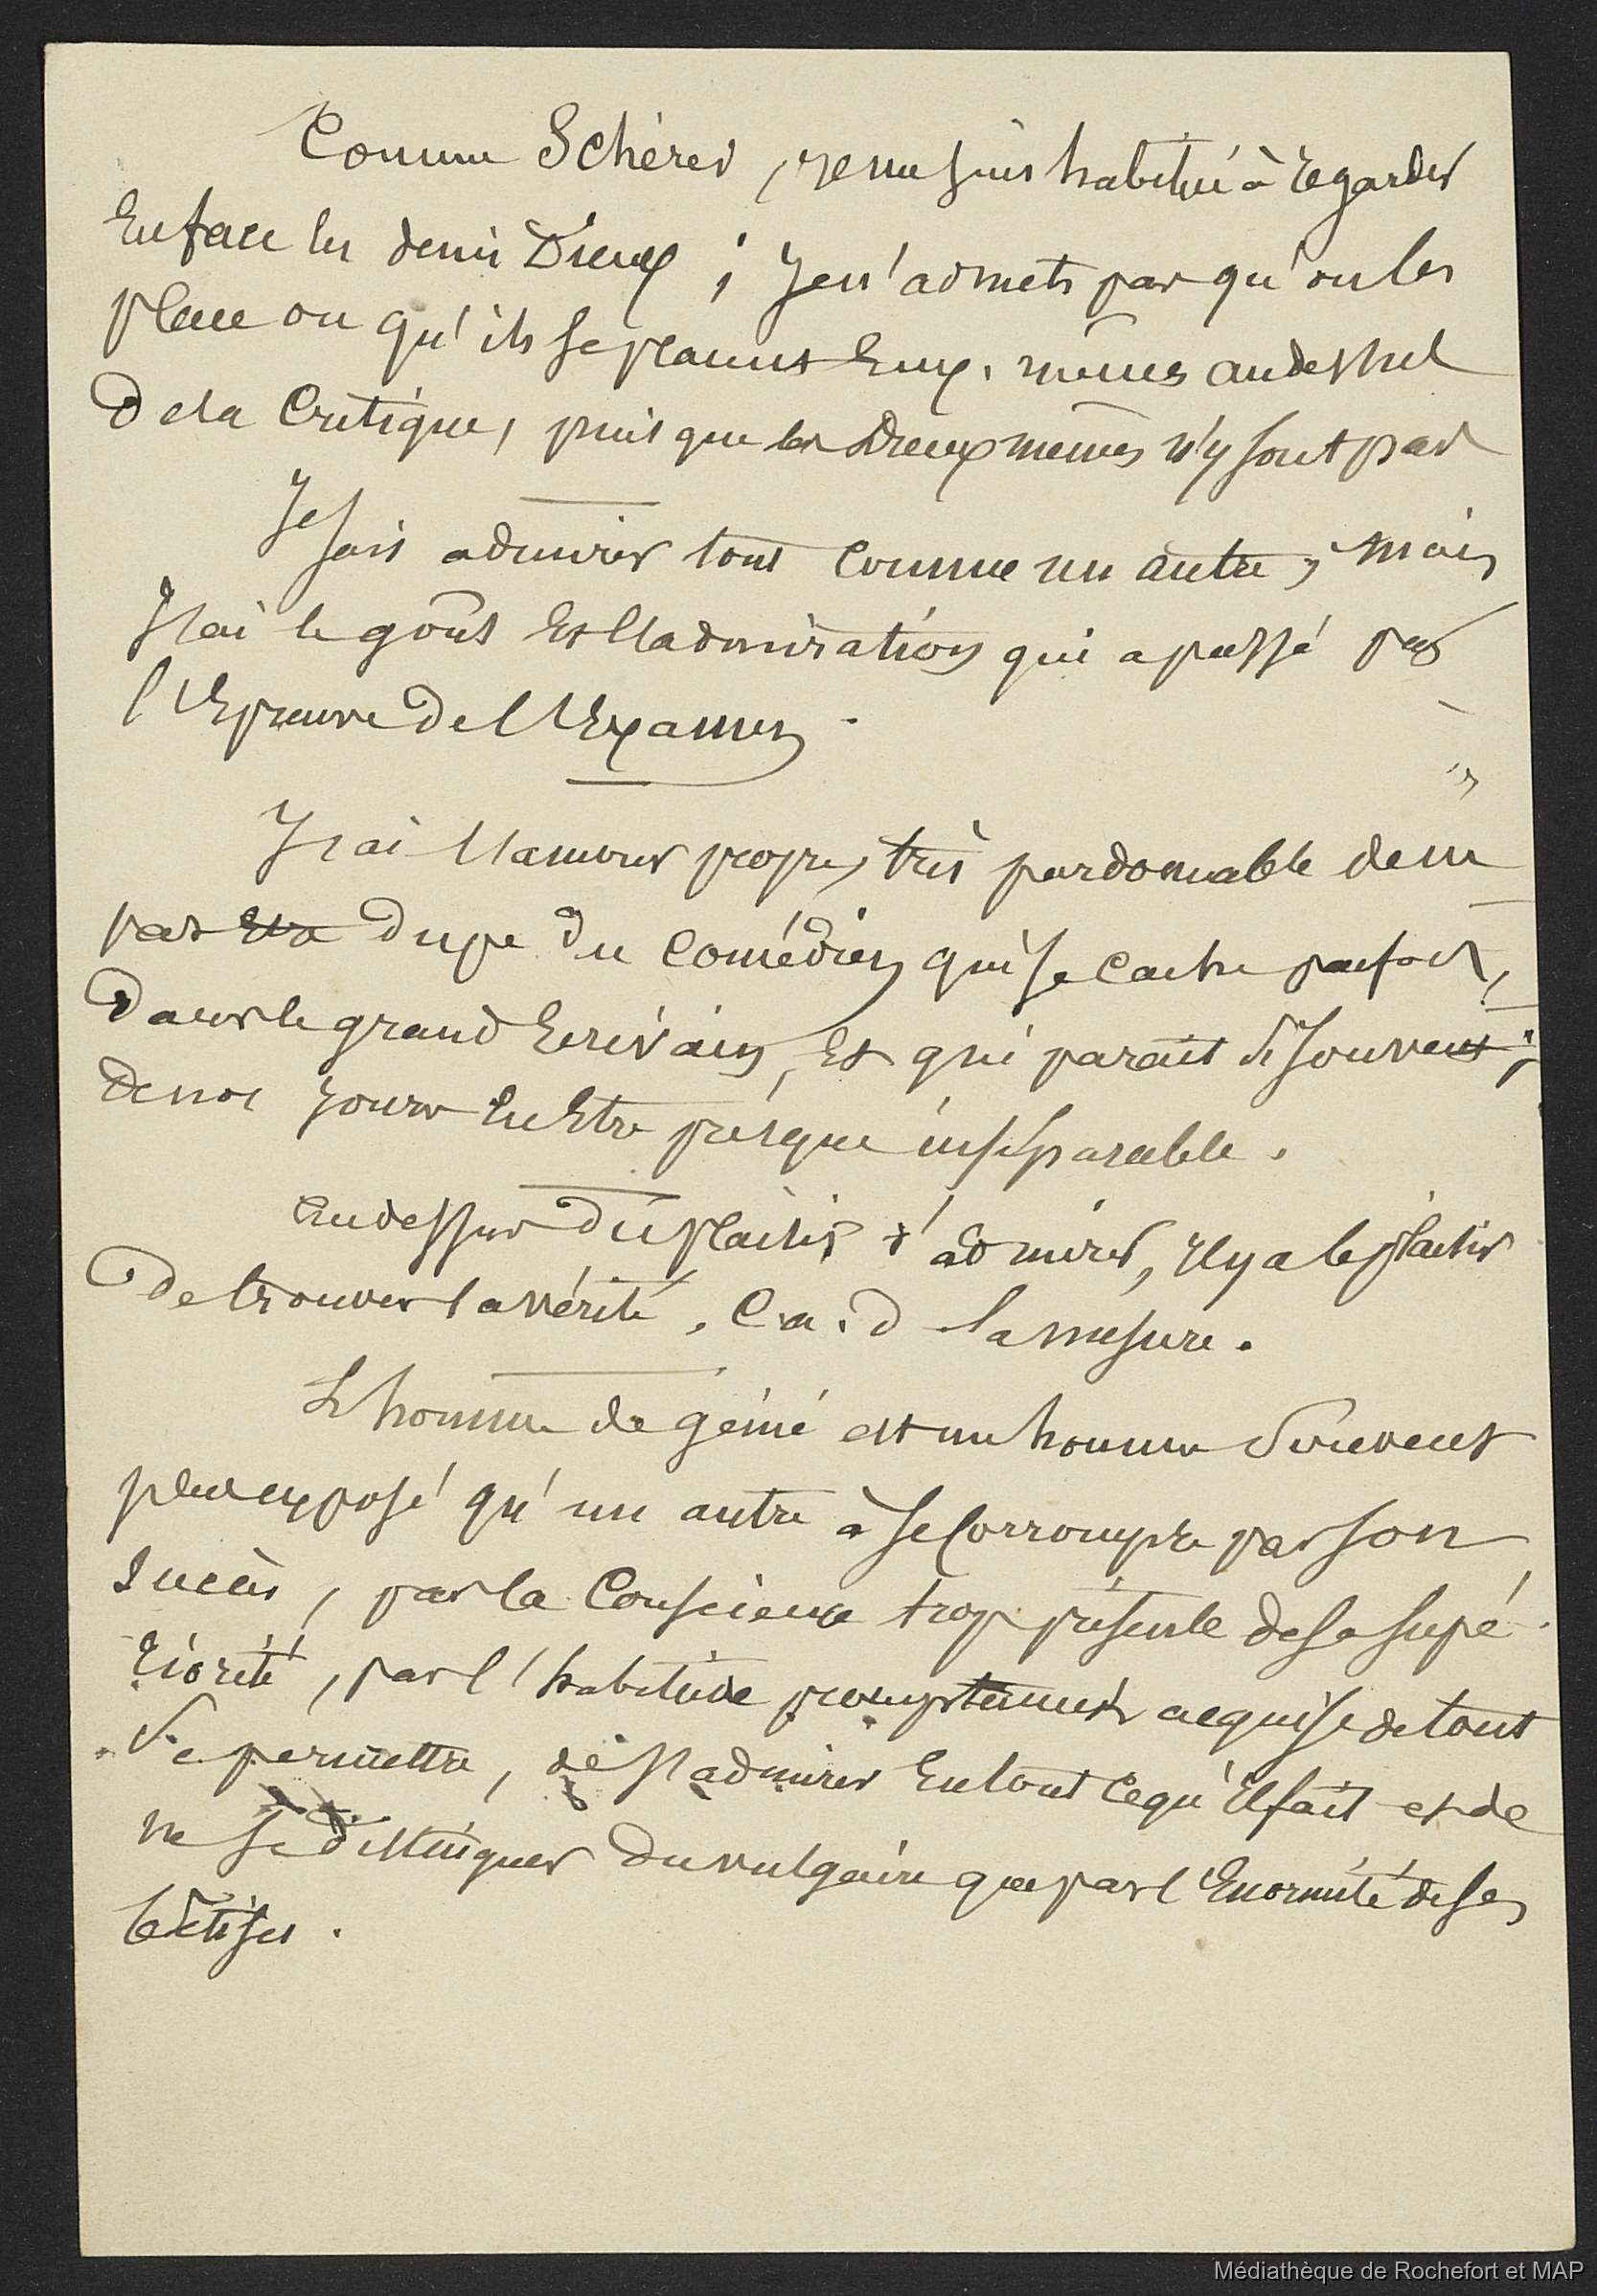 Comme Schérer, je me suis habitué à regarder
En face les demi Dieux ; Je n'admets pas qu'on les
place ou qu'ils se placent Eux-mêmes au dessus
De la Critique, puisque les Dieux mêmes n'y sont pas
Je sais admirer tout comme un autre, mais
J'ai le goût de l'admiration qui a passé par
l'Epreuve de l'Examen.
J'ai l'amour propre, très pardonable de ne
pas dupe du Comédien qui se cache parfois,
Dans le grand Ecrivain, Et qui parait si souvent,
De nos jours En Etre presque inséparable.
Au dessus du plaisir d'admirer, Il y a le plaisir
De trouver la vérité, C.a.d la mesure.
L'homme de génie est un homme Souvent
plus exposé qu'un autre à se Corrompre par son
Succès, par la Conscience trop présente de sa supé-
riorité, par l'habitude promptement acquise de tout
Se permettre, de s'admirer En tout Ce qu'Il fait et de
ne se distinguer Du vulgaire que par l'Enormité de ses
bêtises.
Médiathèque de Rochefort et MAP